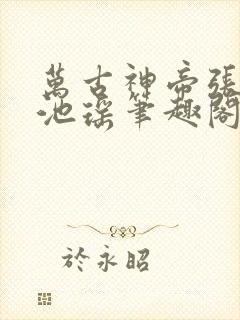 萬古神帝張
池瑤筆趣閣
於永昭